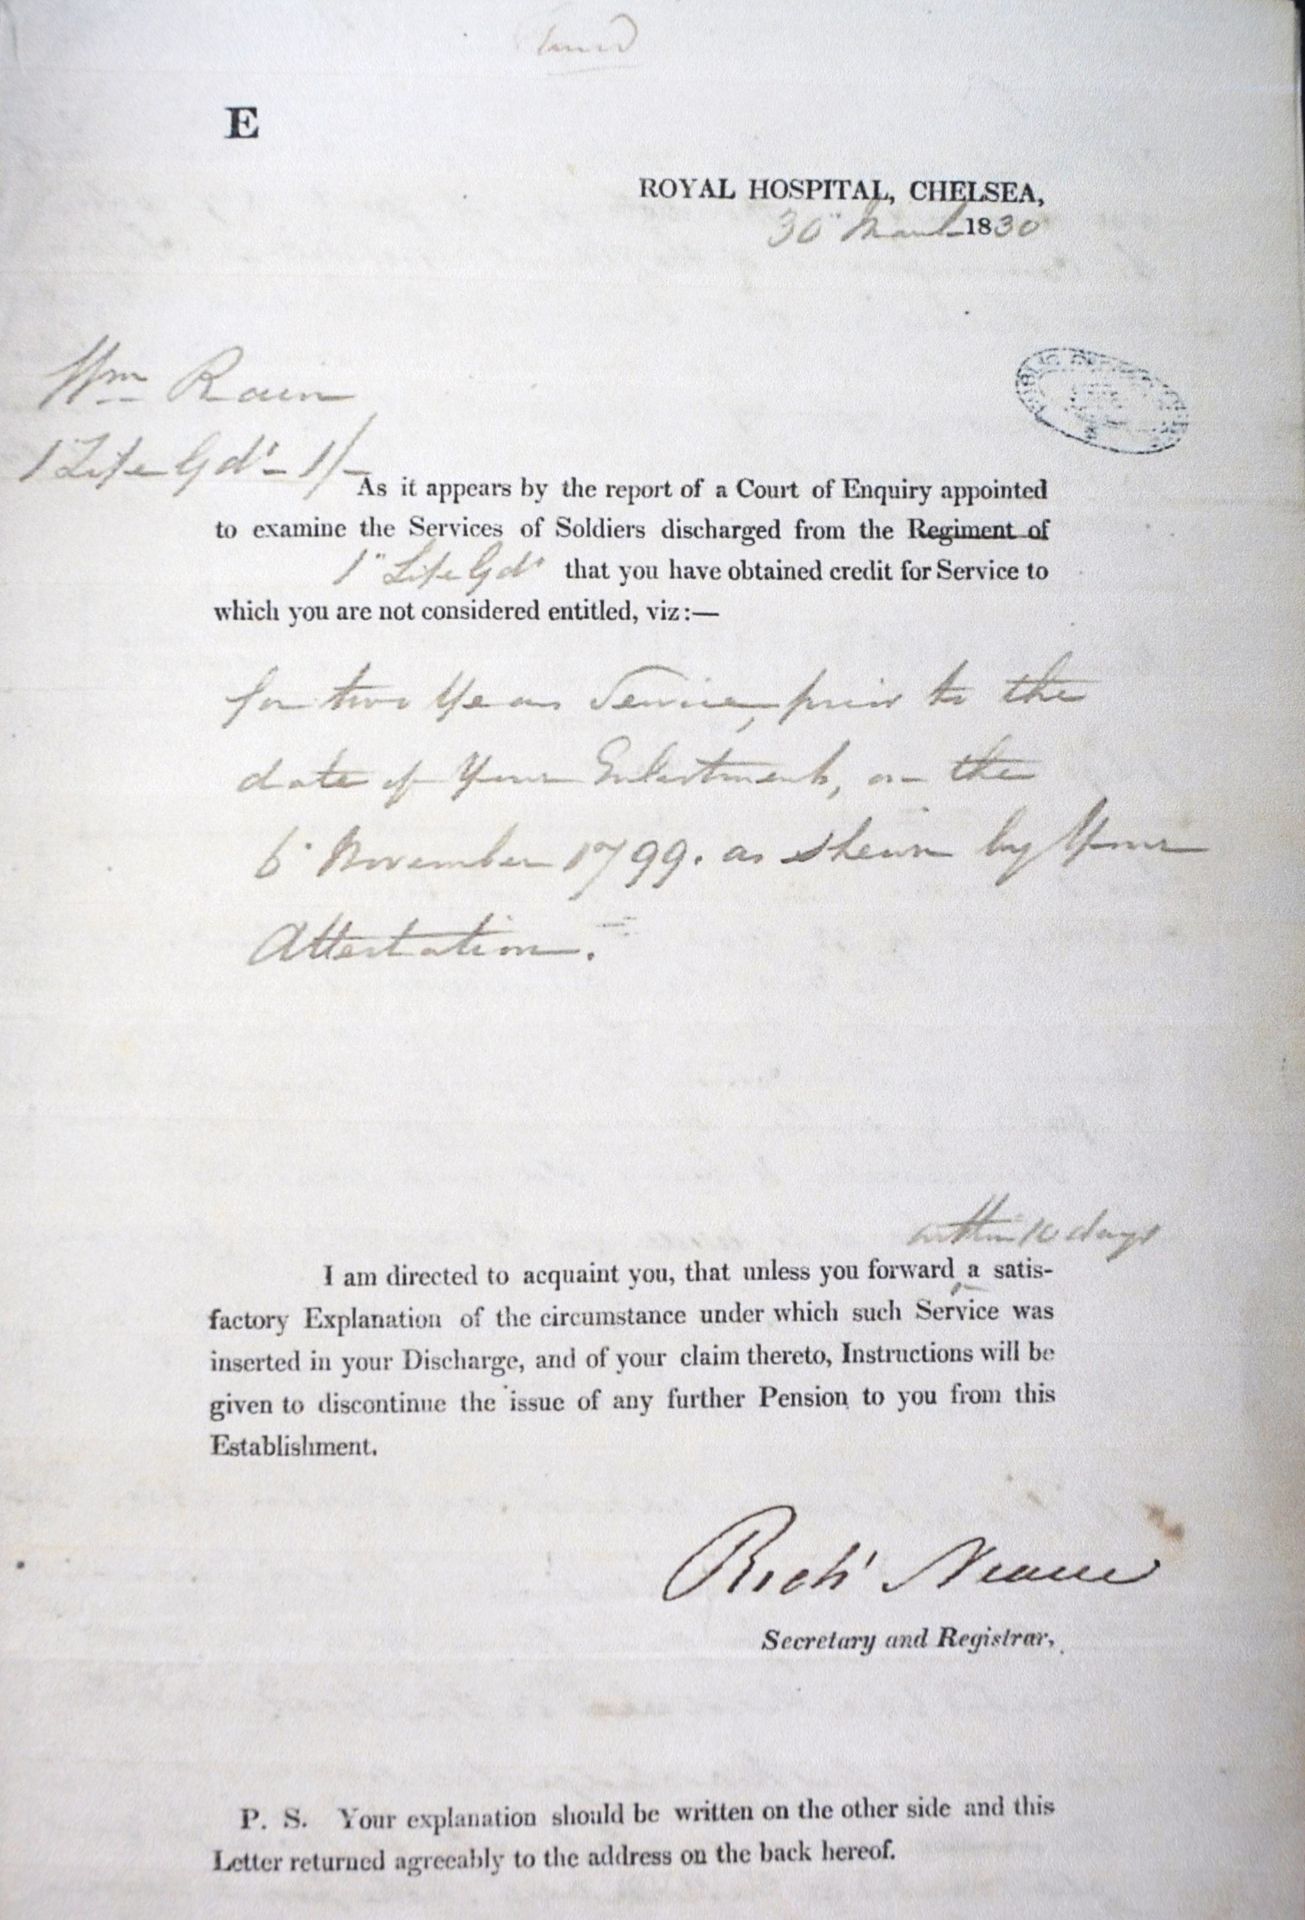 E
ROYAL HOSPITAL, CHELSEA,
30" March 1830
Wm
1 Life Gds 1/-
As it appears by the report of a Court of Enquiry appointed
to examine the Services of Soldiers discharged from the Regiment of
1" Life Gds that you have obtained credit for Service to
which you are not considered entitled, viz:—
for two Years Service, prior to the
date of Your Enlistment, on the
6 November 1799. as shewn by Your
Attestation.
within 10 days
I am directed to acquaint you, that unless you forward ‸ a satis-
factory Explanation of the circumstance under which such Service was
inserted in your Discharge, and of your claim thereto, Instructions will be
given to discontinue the issue of any further Pension to you from this
Establishment.
Richd
Secretary and Registrar.
P. S. Your explanation should be written on the other side and this
Letter returned agreeably to the address on the back hereof.